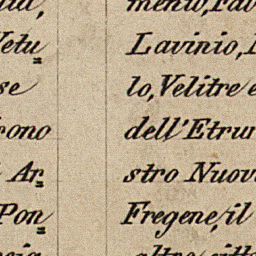 Vetu=
se
sono
Ar=
Pon=
mento,
Lavinio,
lo, Velitre e
dell'Etru
stro Nuov
Fregene, il
altre citt